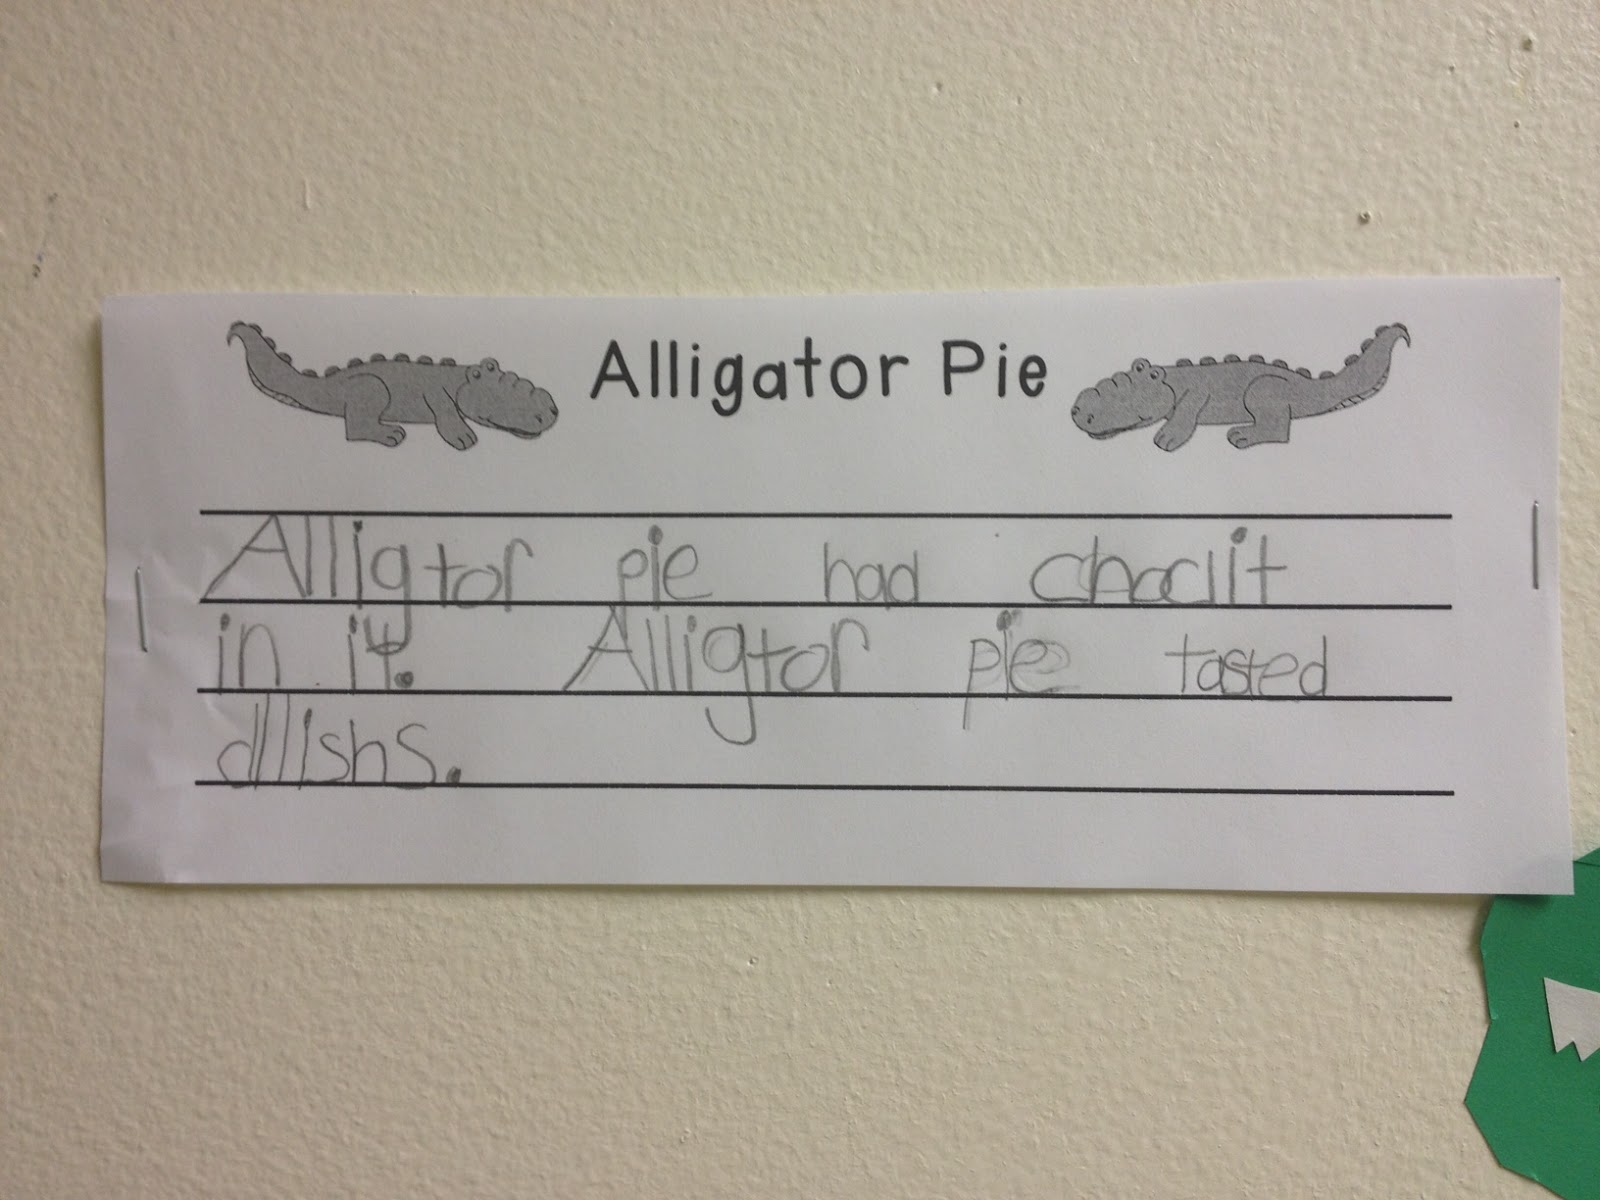 Alligator Pie
Alligtor pie had choclit
in it. Alligtor pie tasted
dllishs.